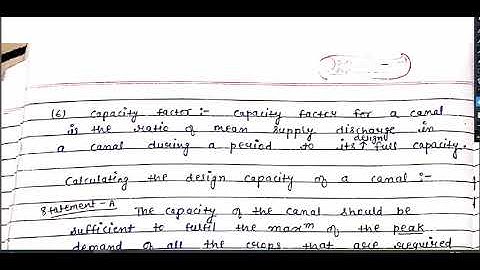 (6) Capacity factor :- Capacity factor for a canal
is the ratio of mean supply discharge in
a canal during a period to its ↑ design full capacity.
Calculating the design capacity of a canal :-
Statement - A The capacity of the canal should be
sufficient to fulfil the maxᵐ of the peak
demand of all the crops that are required